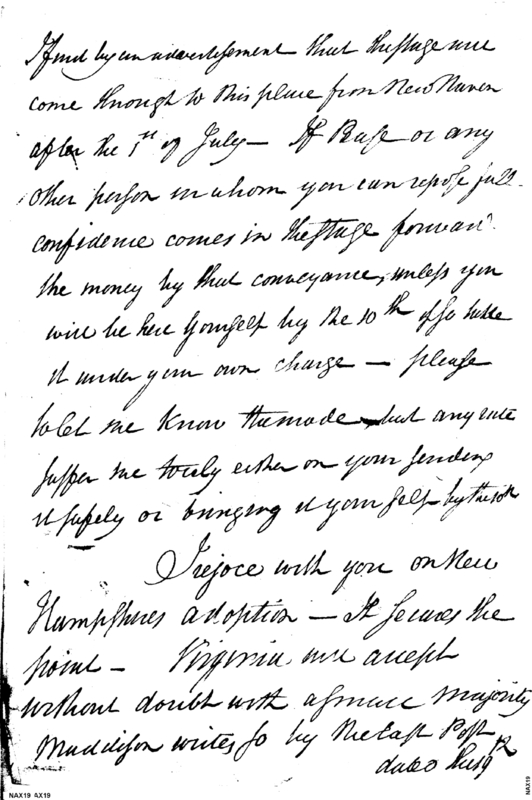 I find by an advertisement that the stage will
come through to this place from New Haven
after the 1st of July — If Buge or any
other person in whom you can repose full
confidence comes in the stage forward
the money by that conveyance, unless you
will be here yourself by the 10th if so take
it under your own charge — please
to let me know the mode but any rate
suffer me to rely either on your sending
it safely or bringing it your self by the 10th
I rejoice with you on New
Humpshires adoption — It secures the
point — Virginia will accept
without doubt with a small majority
Maddison writes so by the East Post
dated the 19th
NAX19 AX19
NAX19